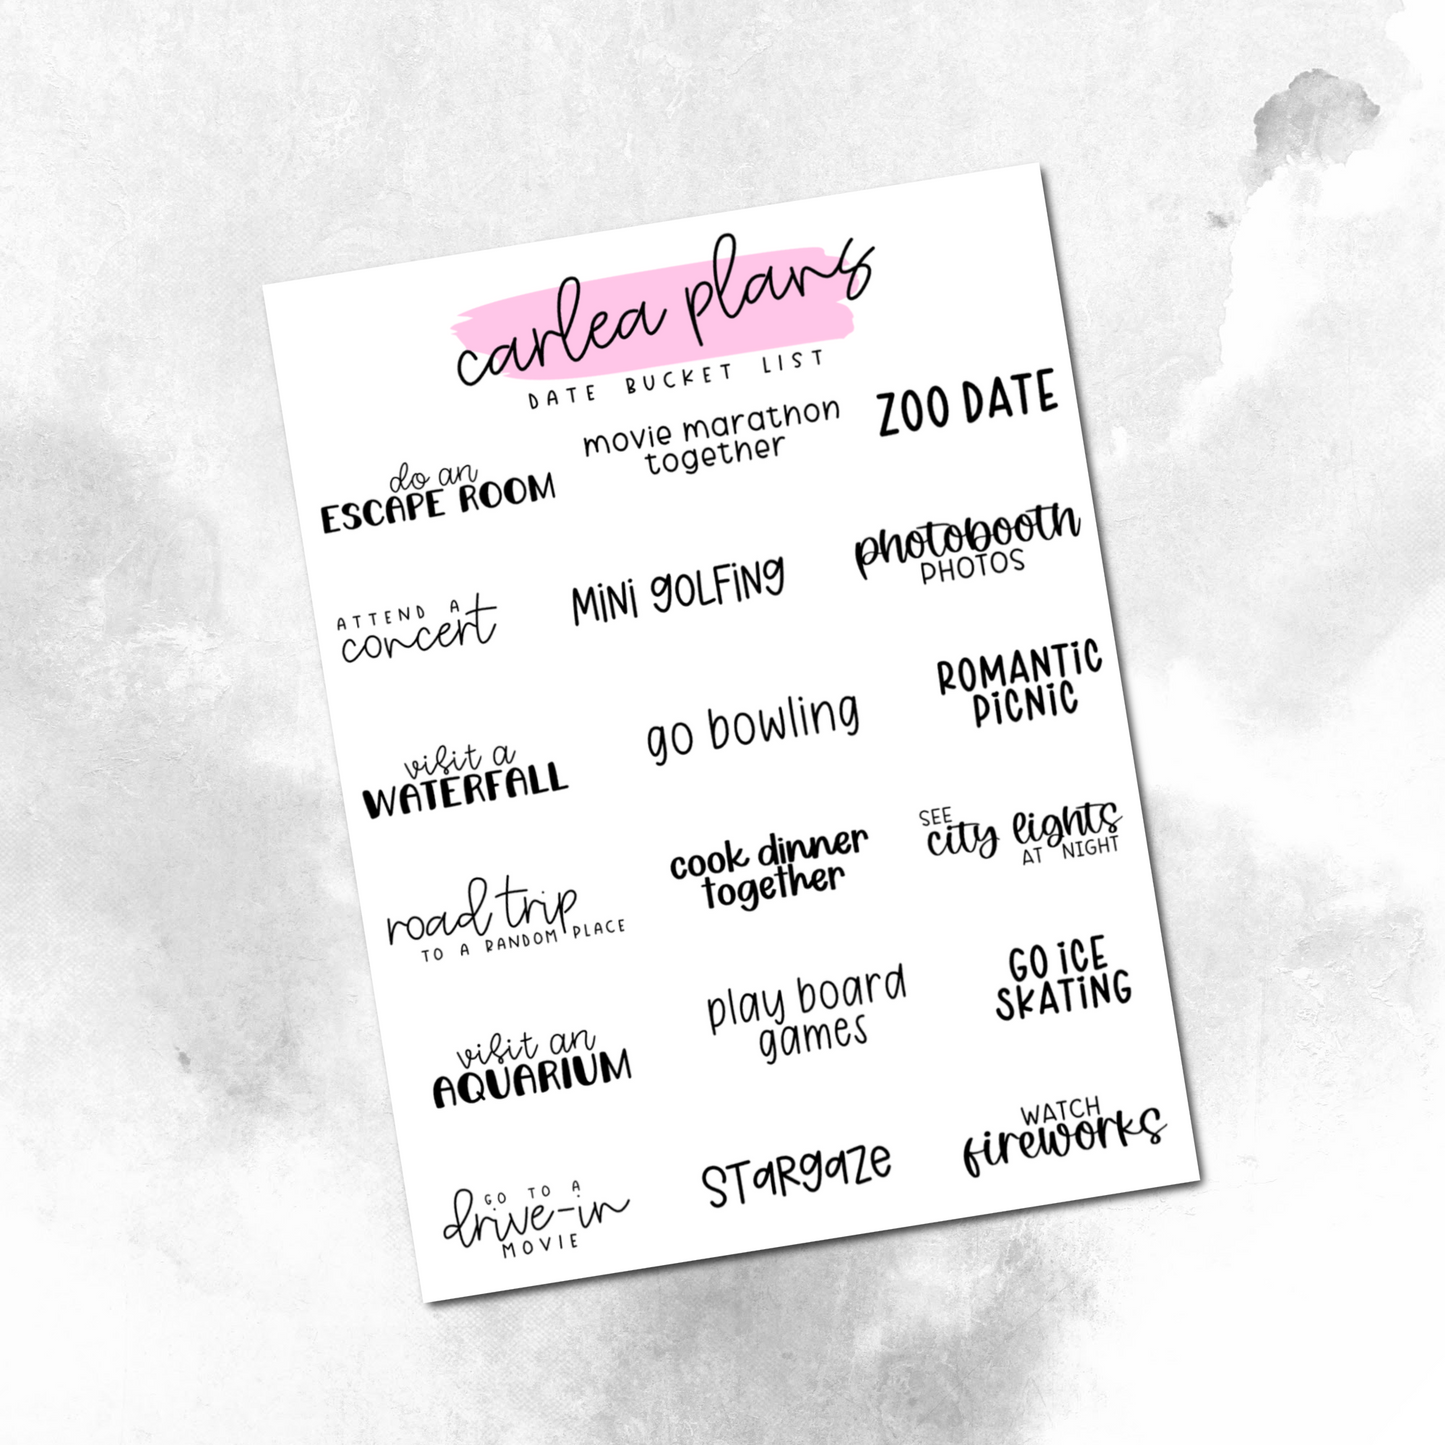 carlea plans
DATE BUCKET LIST
do an
ESCAPE ROOM
movie marathon
together
ZOO DATE
ATTEND A
concert
MiNi gOLFiNg
photobooth
PHOTOS
visit a
WATERFALL
go bowling
ROMANTiC
PiCNiC
road trip
TO A RANDOM PLACE
cook dinner
together
SEE
city lights
AT NIGHT
visit an
AQUARIUM
play board
games
GO iCE
SKATiNG
GO TO A
drive-in
MOVIE
STaRgaZe
WATCH
fireworks